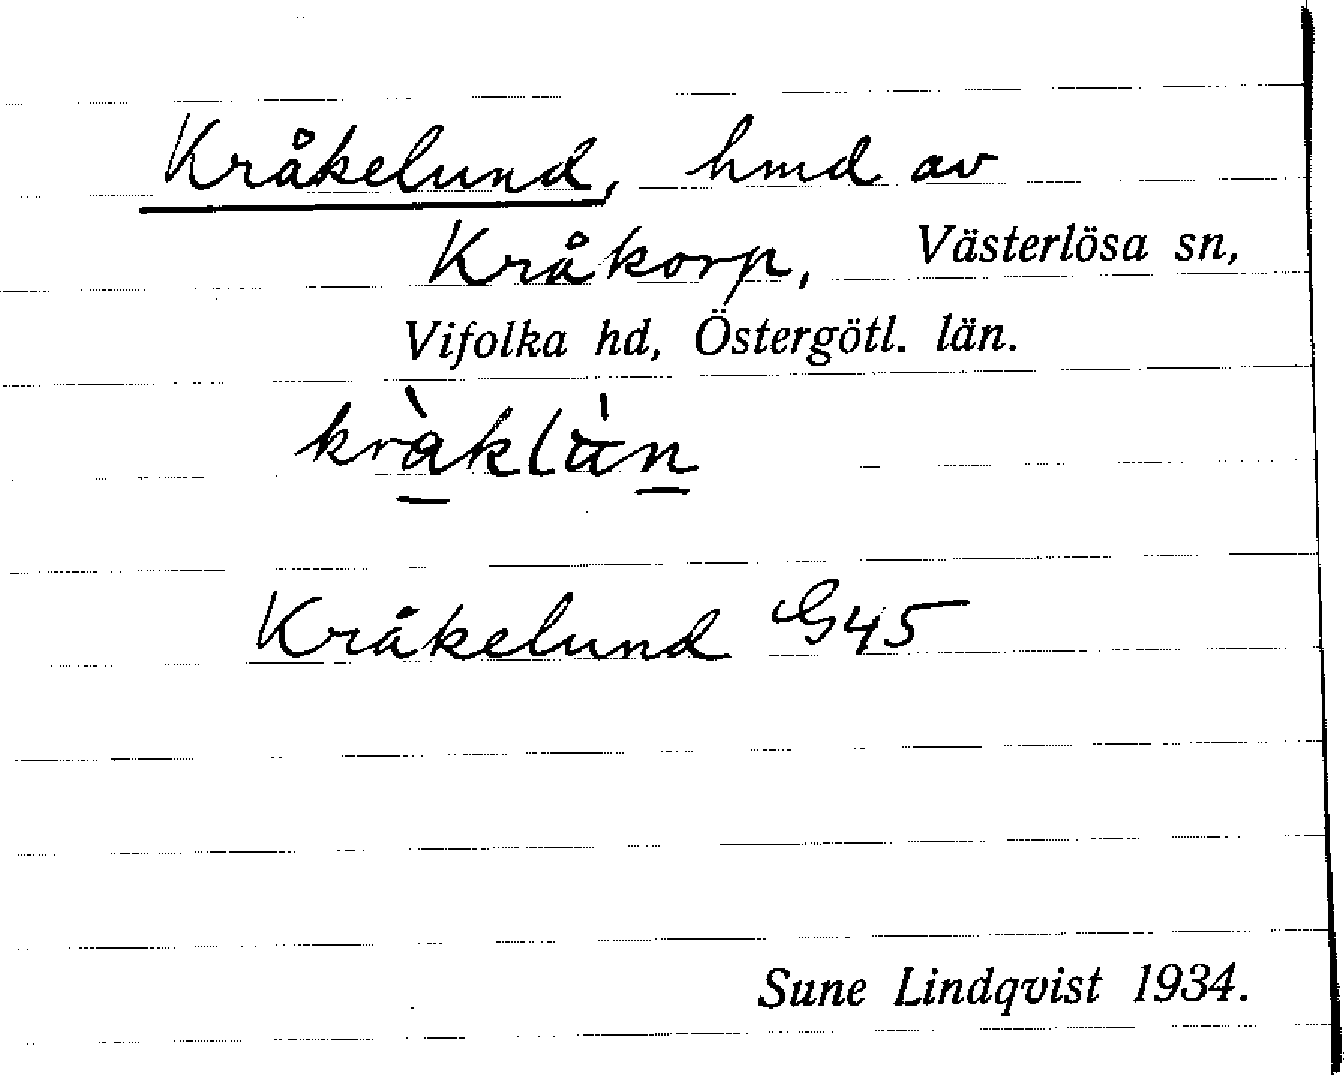 Kråkelund, hmd av
Kråkorp, Västerlösa sn,
Vifolka hd, Östergötl. län.
Kråkelund G45
Sune Lindqvist 1934.